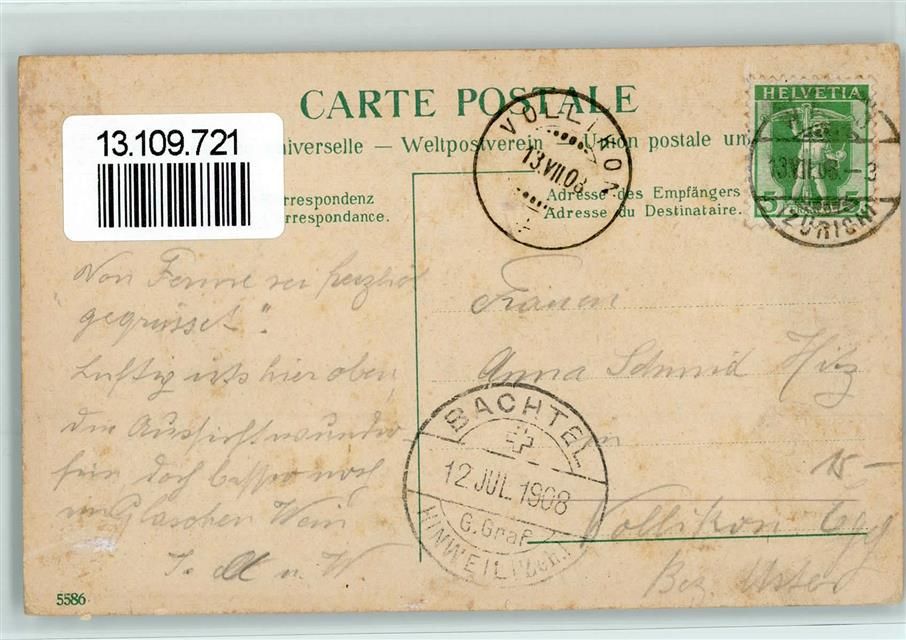 CARTE POSTALE
13.109.721
niverselle — Weltpostverein — Union postale un
rrespondenz
rrespondance.
Adresse des Empfängers
Adresse du Destinataire.
HELVETIA
5 5
13.VII.08.
ZÜRICH
VOLLIKON
13.VII.08
"Von Ferne sei herzlich
gegrüsset".
Luftig ists hier oben,
die Aussicht wunder-
fein, doch besser noch
ein Gläschen Wein
Frauen
Anna Schmid Hitz
in
Vollikon Egg
Bez. Uster
BACHTEL
12 JUL 1908
G. Graf
HINWEIL (Zch.)
5586